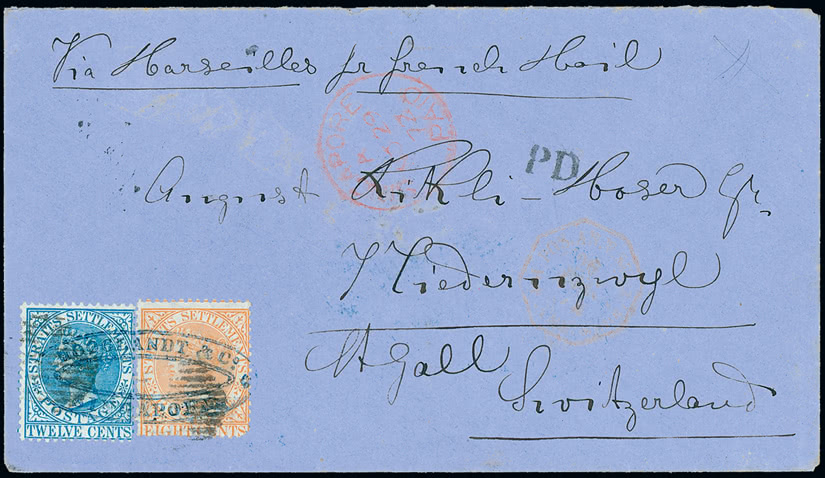 Via Marseilles pr french Mail
PAID
PD
August Rikli-Moser Esq.
Niederuzwyl
St Gall
Switzerland
STRAITS SETTLEMENTS
POSTAGE
TWELVE CENTS
STRAITS SETTLEMENTS
EIGHT CENTS
& Co.